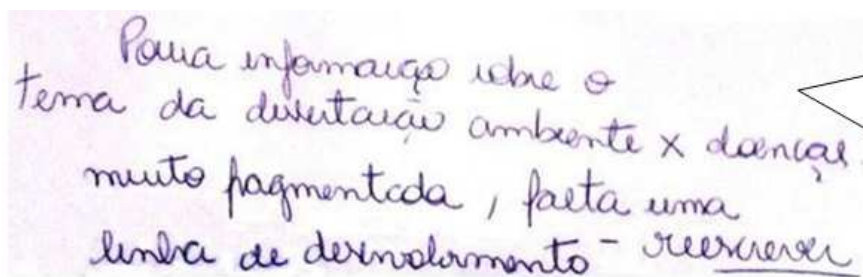 Pouca informação sobre o
tema da dissertação ambiente x doenças.
muito fragmentada, falta uma
linha de desenvolvimento - reescrever